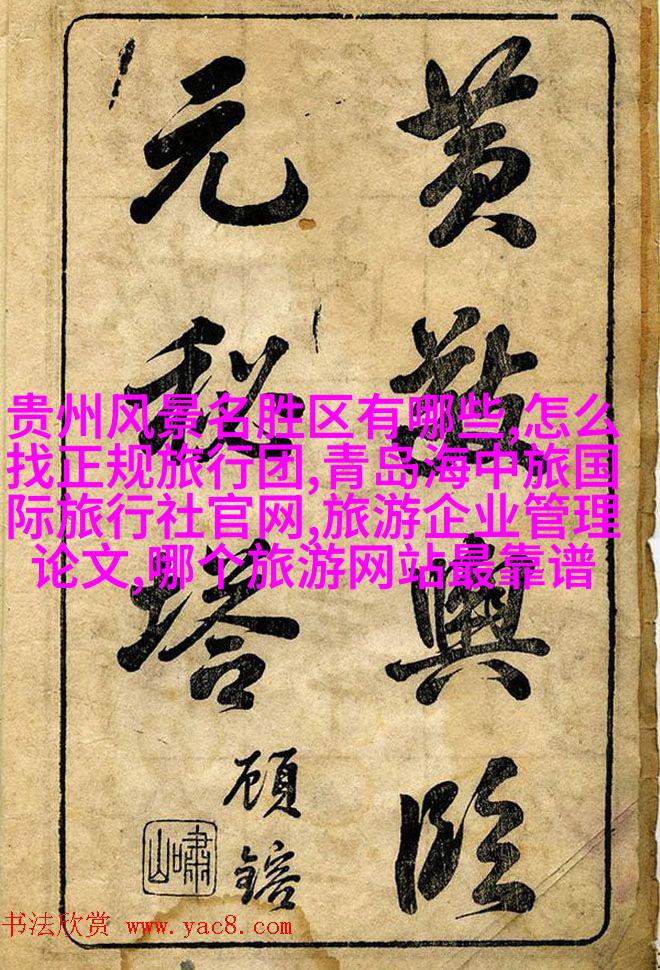 黄敬輿臨
元秘塔
顾鎔
嘯山
贵州风景名胜区有哪些,怎么
找正规旅行团,青岛海中旅国
际旅行社官网,旅游企业管理
论文,哪个旅游网站最靠谱
书法欣赏 www.yac8.com